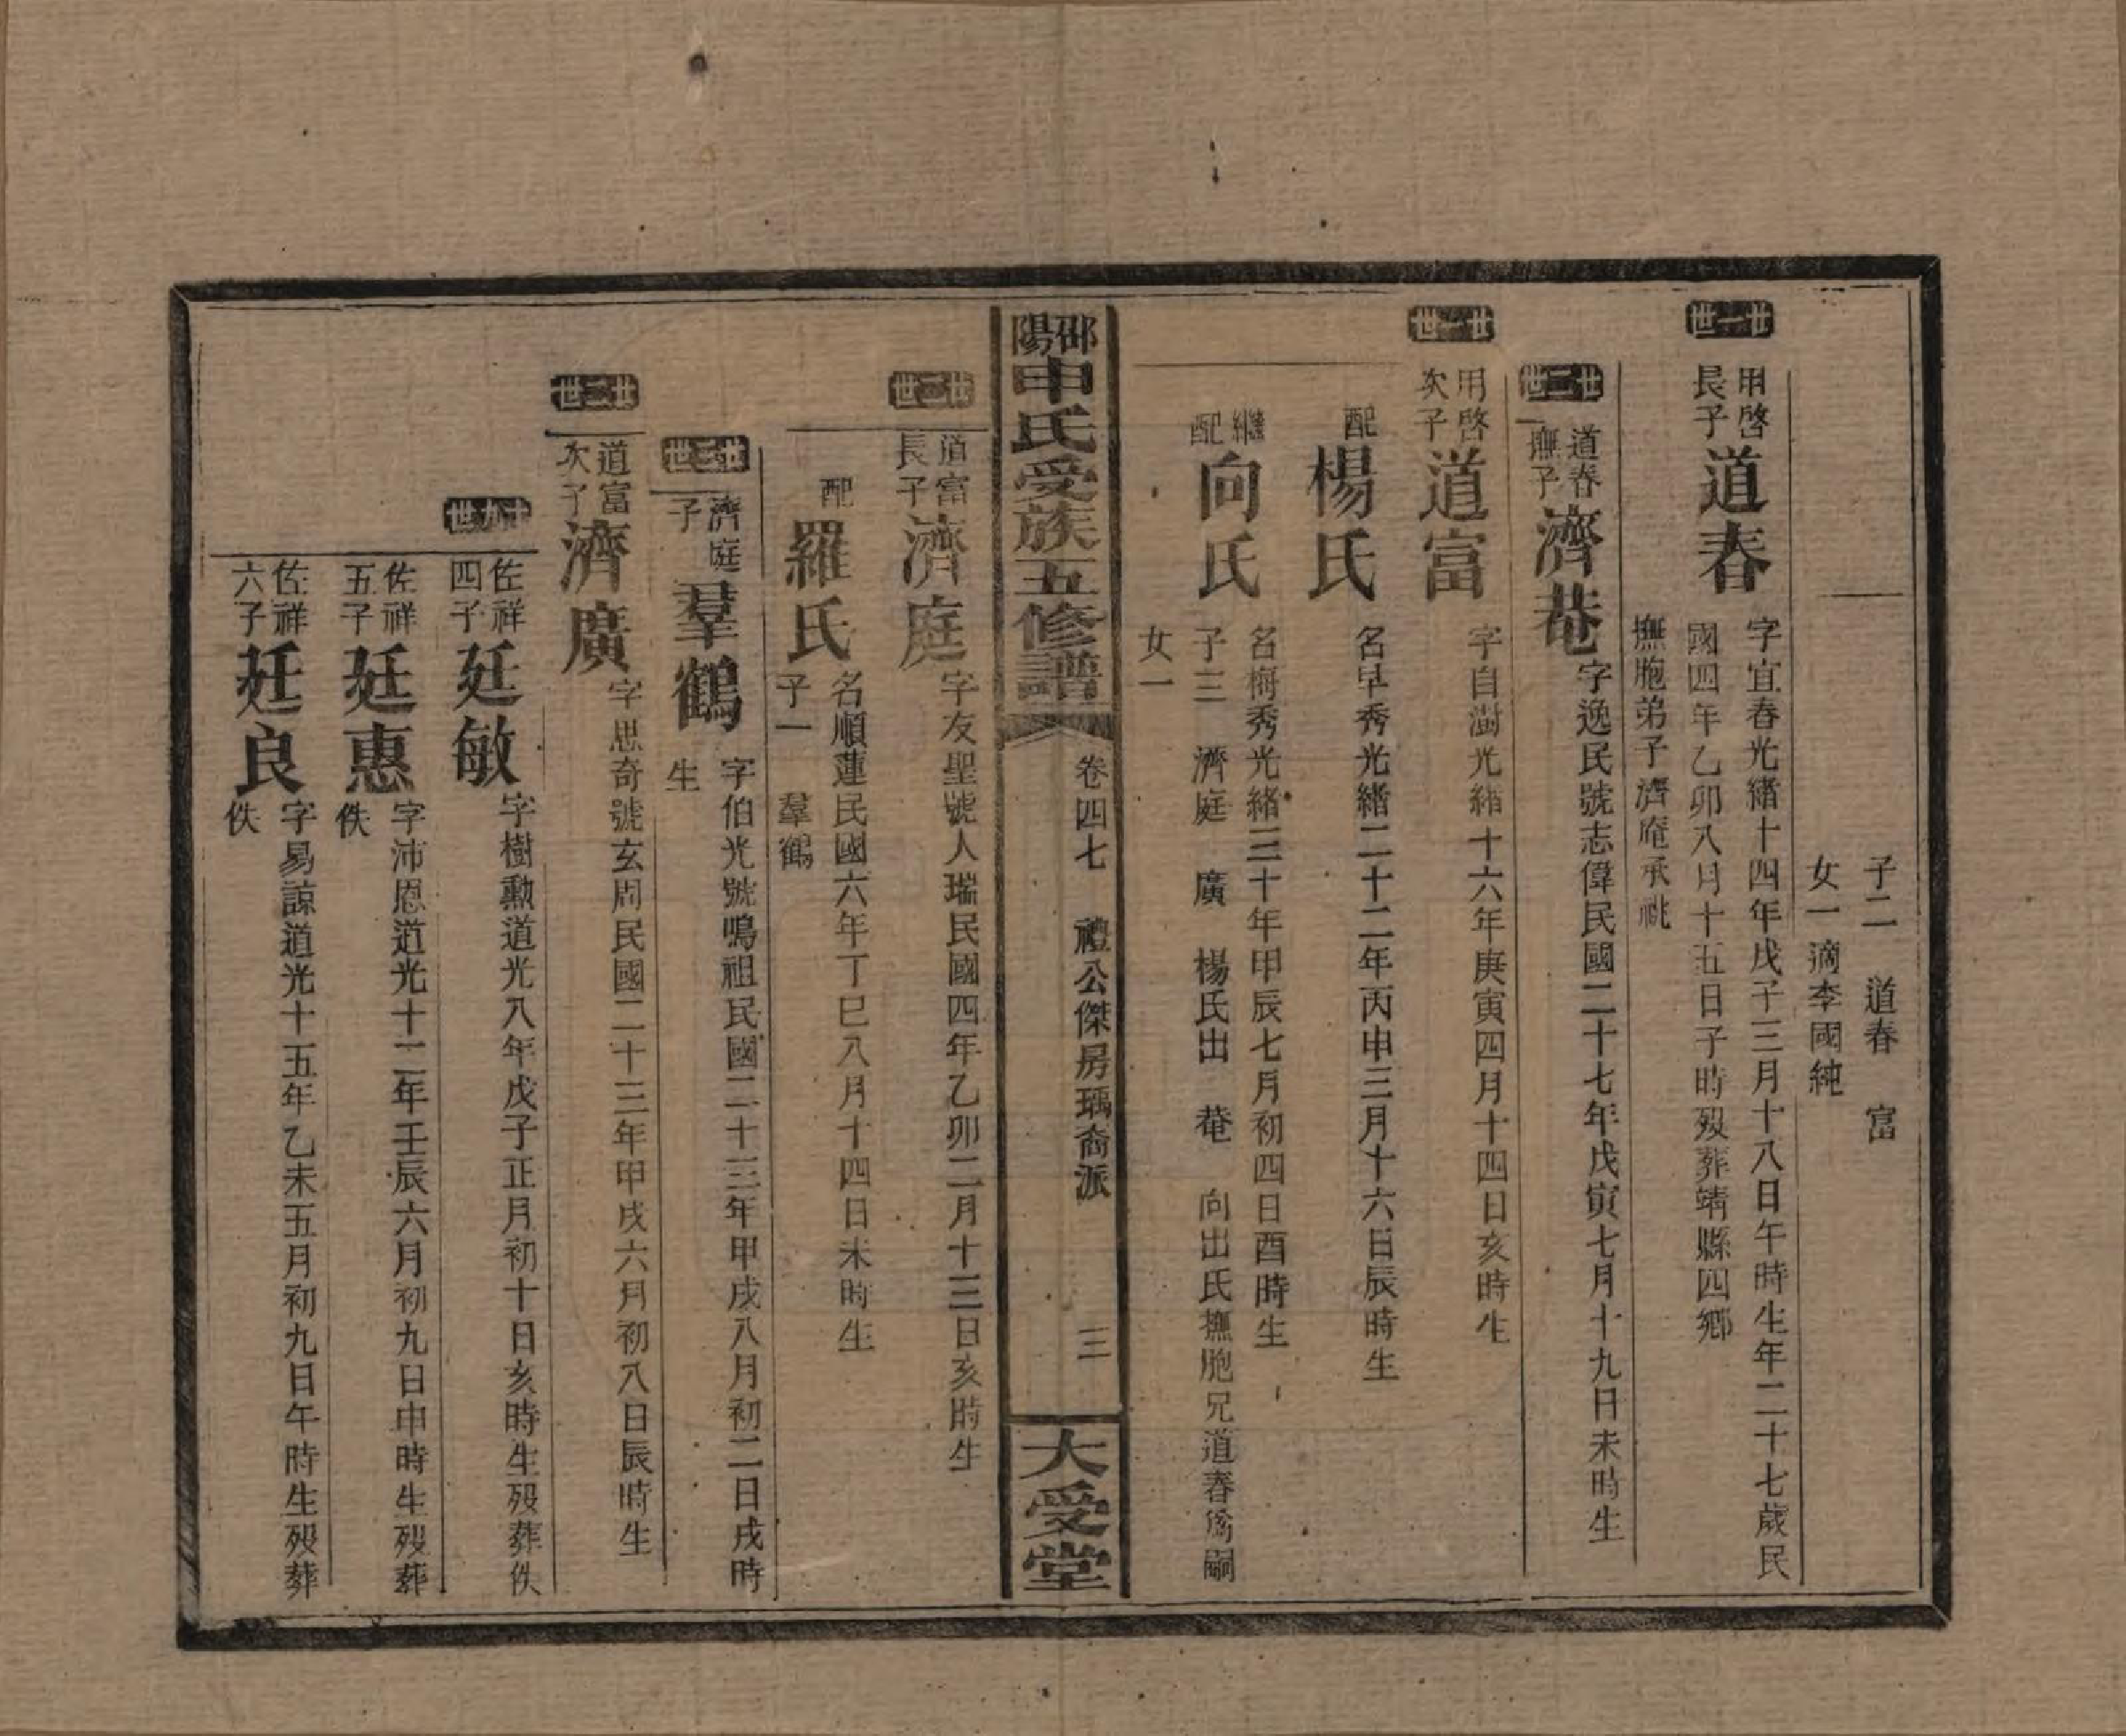 子二　道春　富
女一適李國純
廿一世
用啓
長子
道春
字宜春光緒十四年戊子三月十八日午時生年二十七歲民
國四年乙卯八月十五日子時歿葬靖縣四鄉
撫胞弟子濟庵承祧
廿二世
道春
撫子
濟菴
字逸民號志偉民國二十七年戊寅七月十九日未時生
廿一世
用啓
次子
道富
字自澍光緒十六年庚寅四月十四日亥時生
配
楊氏
名早秀光緒二十二年丙申三月十六日辰時生
繼
配
向氏
名樹秀光緒三十年甲辰七月初四日酉時生
子三　濟庭　廣　楊氏出　菴　向出氏撫胞兄道春為嗣
女一
邵陽申氏受族五修譜
卷四七　禮公傑房瑀裔派
三
大受堂
廿二世
道富
長子
濟庭
字友聖號人瑞民國四年乙卯二月十三日亥時生
配
羅氏
名順蓮民國六年丁巳八月十四日未時生
子一　羣鶴
廿三世
濟庭
子
羣鶴
字伯光號鳴祖民國二十三年甲戌八月初二日戌時
生
廿二世
道富
次子
濟廣
字思奇號玄周民國二十三年甲戌六月初八日辰時生
十九世
佐祥
四子
廷敏
字樹勲道光八年戊子正月初十日亥時生歿葬佚
佐祥
五子
廷惠
字沛恩道光十二年壬辰六月初九日申時生歿葬
佚
佐祥
六子
廷良
字易諒道光十五年乙未五月初九日午時生歿葬
佚